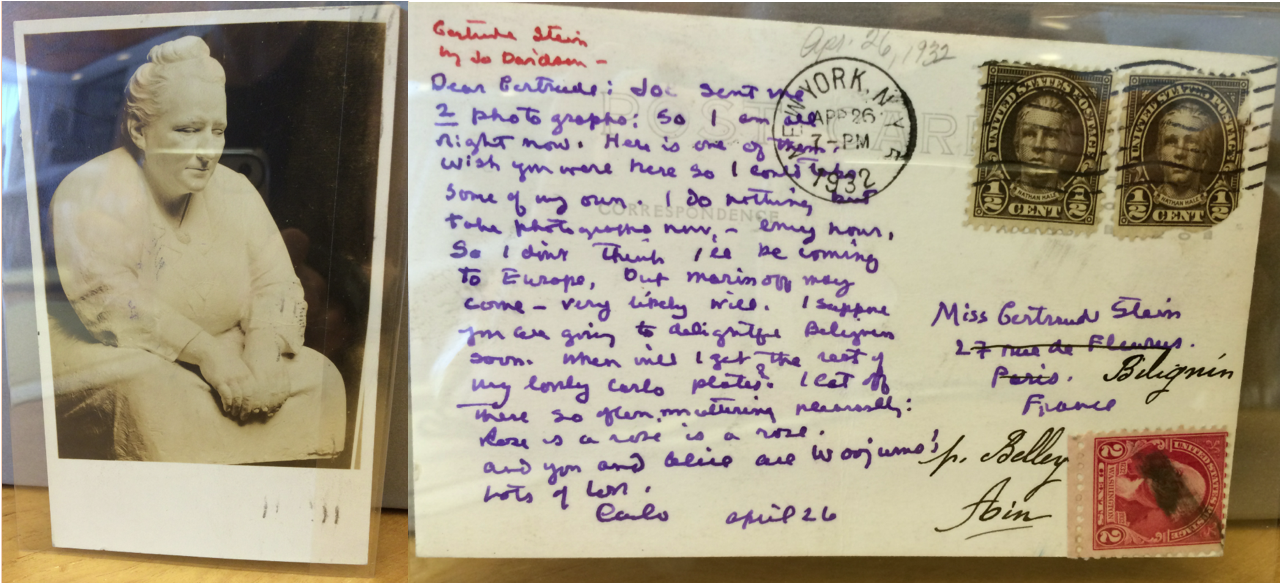 Gertrude Stein
by Jo Davidson -
Apr. 26, 1932
POST CARD
CORRESPONDENCE
Dear Gertrude: Joe sent me
2 photographs: So I am all
right now. Here is one of them.
Wish you were here so I could take
some of my own. I do nothing but
take photographs now, - every hour.
So I don't think I'll be coming
to Europe, but Marinoff may
come - very likely will. I suppose
you are going to delightful Belignin
soon. When will I get the rest of
my lovely Carlo plates? I eat off
these so often, muttering
Rose is a rose is a rose.
and you and Alice are Woojums!
Lots of love.
Carlo april 26
NEW YORK, N.Y.
APR 26
7-PM
1932
UNITED STATES POSTAGE
NATHAN HALE
1/2 CENT 1/2
UNITED STATES POSTAGE
NATHAN HALE
1/2 CENT 1/2
Miss Gertrude Stein
27 rue de Fleurus.
Paris. Bilignin
France
p. Belley
Ain
UNITED STATES POSTAGE
WASHINGTON
2 CENTS 2